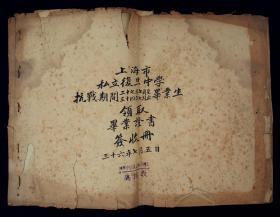 上海市
私立復旦中学
抗戰期間
畢業生
領取
畢業證書
簽收冊
三十六年七月五日